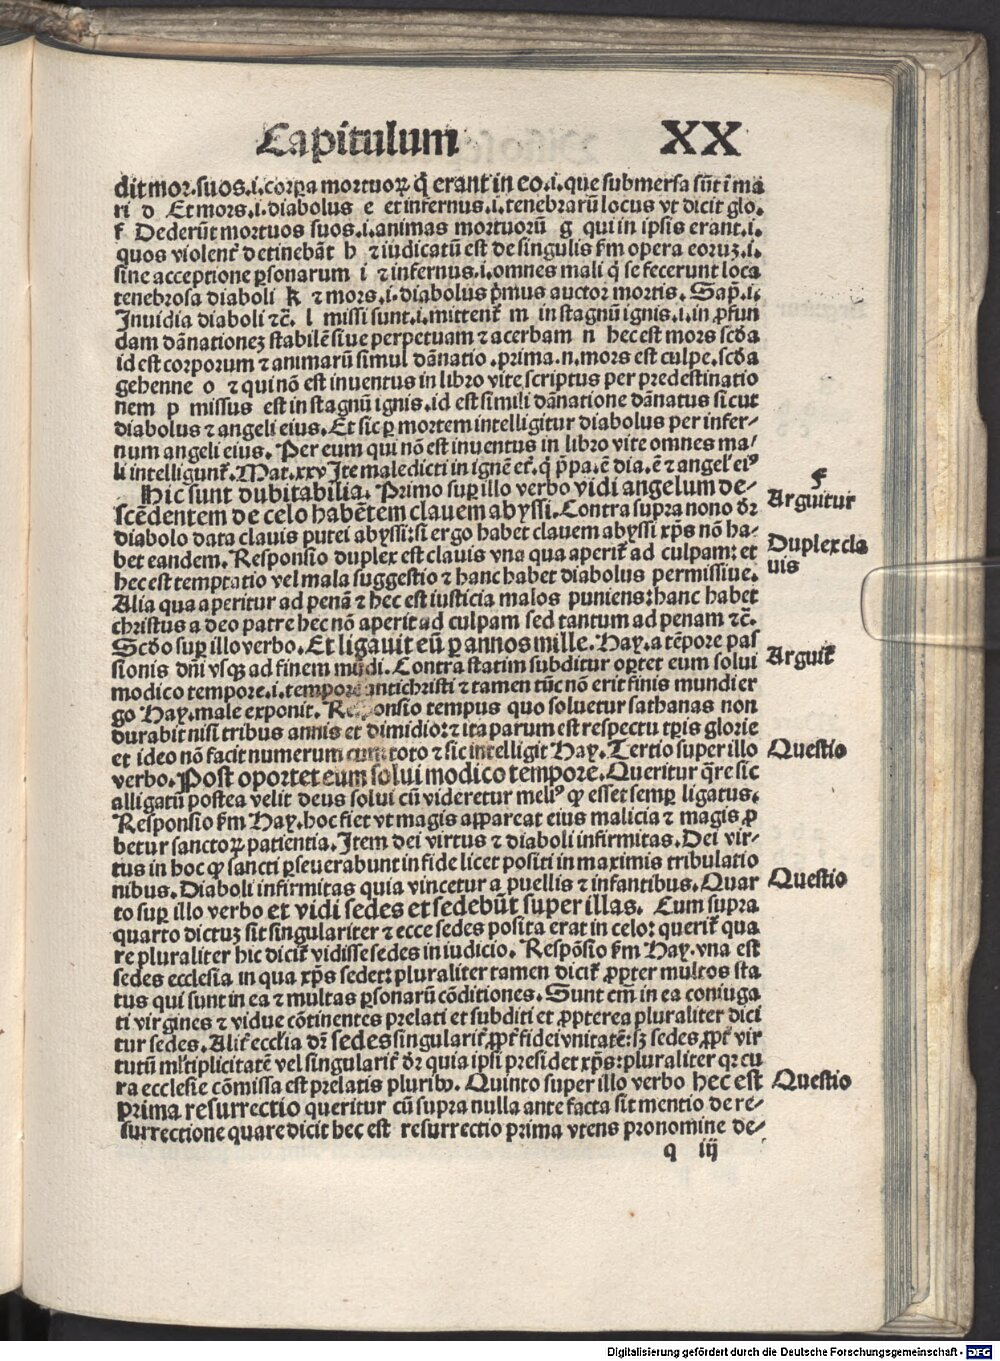 Capitulum XX
dit mor. suos .i. corꝑa mortuoꝝ q̄ erant in eo .i. que submersa sūt ī ma
ri d Et mors .i. diabolus e et infernus .i. tenebrarū locus vt dicit glo.
f Dederūt mortuos suos .i. animas mortuorū g qui in ipsis erant .i.
quos violent᷒ detinebāt h ⁊ iudicatū est de singulis ẜm opera eoruꝫ .i.
sine acceptione ꝑsonarum i ⁊ infernus .i. omnes mali q̇ se fecerunt loca
tenebrosa diaboli k ⁊ mors .i. diabolus p̄mus auctor mortis. Sap̄. i.
Inuidia diaboli ⁊c̄. l missi sunt .i. mittent᷑ m in stagnū ignis .i. in ꝓfun
dam dānationeꝫ stabilē siue perpetuam ⁊ acerbam n hec est mors scd̄a
id est corporum ⁊ animarū simul dānatio .prima. n. mors est culpe. scd̄a
gehenne o ⁊ qui nō est inuentus in libro vite scriptus per predestinatio
nem p missus est in stagnū ignis. id est simili dānatione dānatus sicut
diabolus ⁊ angeli eius. Et sic ꝑ mortem intelligitur diabolus per infer-
num angeli eius. Per eum qui nō est inuentus in libro vite omnes ma-
li intelligunt᷑. Mat. xxv Ite maledicti in ignē et᷑. q̇ p̄pa. ē dia. ē ⁊ angel᷑ eiꝰ
Hic sunt dubitabilia. Primo suꝑ illo verbo vidi angelum de-
scēdentem de celo habētem clauem abyssi. Contra supra nono dr̄
diabolo data clauis putei abyssi: si ergo habet clauem abyssi xp̄s nō ha-
bet eandem. Responsio duplex est clauis vna qua aperit᷑ ad culpam: et
hec est temptatio vel mala suggestio ⁊ hanc habet diabolus permissiue.
Alia qua aperitur ad penā ⁊ hec est iusticia malos puniens: hanc habet
christus a deo patre hec nō aperit ad culpam sed tantum ad penam ⁊c̄.
Scd̄o suꝑ illo verbo. Et ligauit eū ꝑ annos mille. Hay. a tēpore pas
sionis dn̄i vsqꝫ ad finem mūdi. Contra statim subditur oꝑtet eum solui
modico tempore .i. tempore antichristi ⁊ tamen tūc nō erit finis mundi er
go Hay. male exponit. Responsio tempus quo soluetur sathanas non
durabit nisi tribus annis et dimidio: ⁊ ita parum est respectu tp̄is glorie
et ideo nō facit numerum cum toto ⁊ sic intelligit Hay. Tertio super illo
verbo. Post oportet eum solui modico tempore. Queritur q̄re sic
alligatū postea velit deus solui cū videretur meliꝰ ꝙ esset semꝑ ligatus.
Responsio ẜm Hay. hoc fiet vt magis appareat eius malicia ⁊ magis ꝓ
betur sanctoꝝ patientia. Item dei virtus ⁊ diaboli infirmitas. Dei vir-
tus in hoc ꝙ sancti ꝑseuerabunt in fide licet positi in maximis tribulatio
nibus. Diaboli infirmitas quia vincetur a puellis ⁊ infantibus. Quar
to suꝑ illo verbo et vidi sedes et sedebūt super illas. Cum supra
quarto dictuꝫ sit singulariter ⁊ ecce sedes posita erat in celo: querit᷑ qua
re pluraliter hic dicit᷑ vidisse sedes in iudicio. Respōsio ẜm Hay. vna est
sedes ecclesia in qua xp̄s sedet: pluraliter tamen dicit᷑ ꝓpter multos sta
tus qui sunt in ea ⁊ multas ꝑsonarū cōditiones. Sunt em̄ in ea coniuga
ti virgines ⁊ vidue cōtinentes prelati et subditi et ꝓpterea pluraliter dici
tur sedes. Alit᷑ ecclīa dr̄ sedes singularit᷑ ꝓpt᷑ fidei vnitatē: sꝫ sedes ꝓpt᷑ vir
tutū ml̄tiplicitatē vel singularit᷑ dr̄ quia ipsi presidet xp̄s: pluraliter qꝛ cu
ra ecclesie cōmissa est prelatis pluribꝰ. Quinto super illo verbo hec est
prima resurrectio queritur cū supra nulla ante facta sit mentio de re-
surrectione quare dicit hec est resurrectio prima vtens pronomine de-
q iij
F
Arguitur
Duplex cla
uis
Arguit᷑
Questio
Questio
Questio
Digitalisierung gefördert durch die Deutsche Forschungsgemeinschaft - DFG